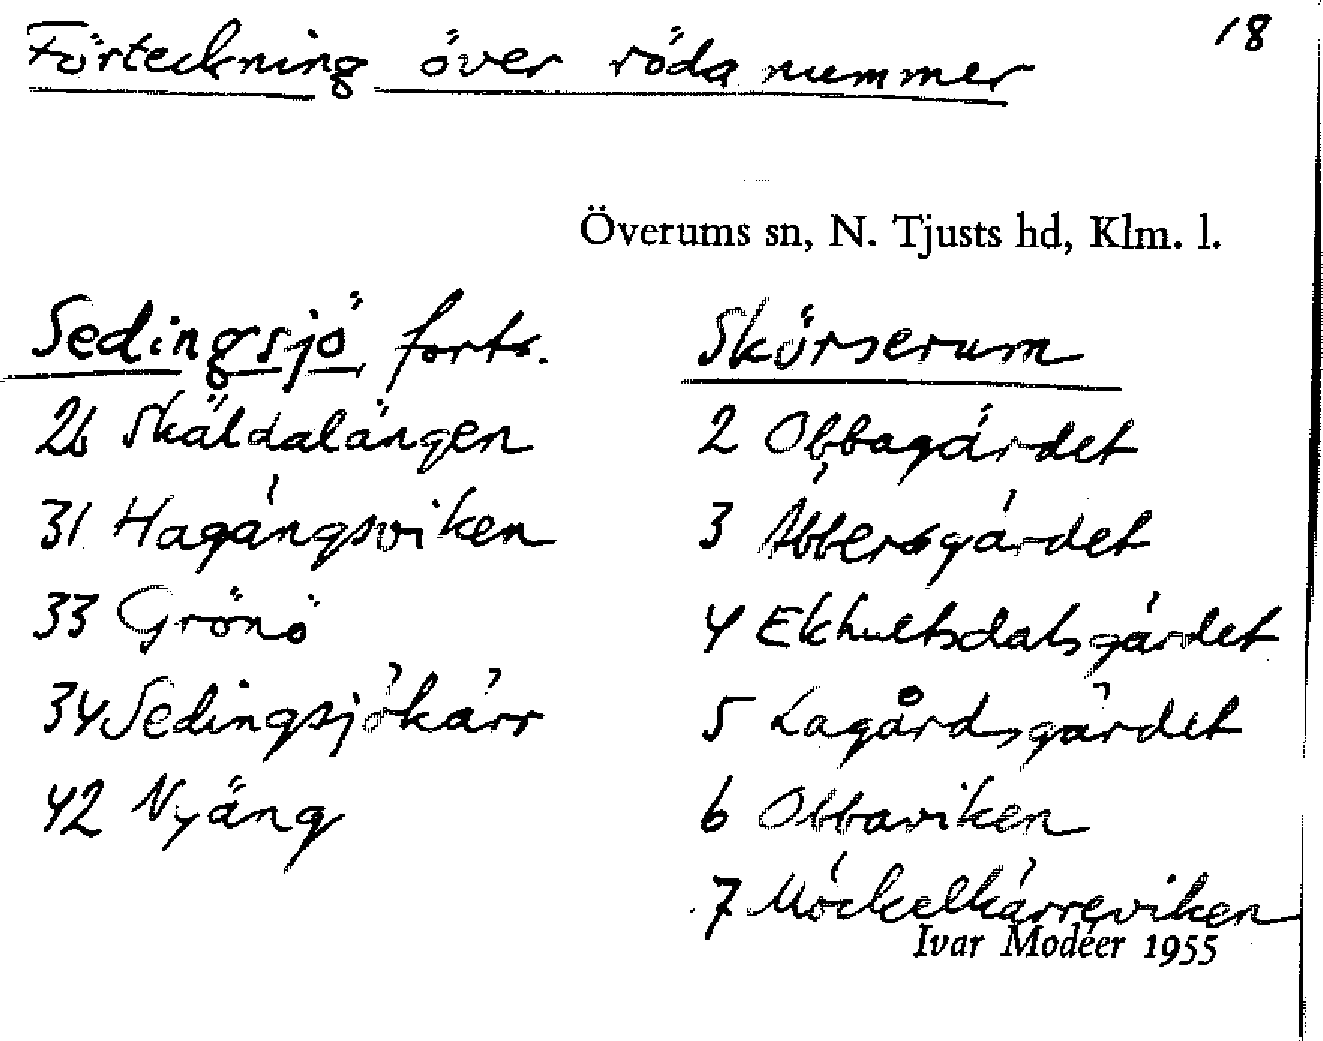 Förteckning över röda nummer
18
Överums sn, N. Tjusts hd, Klm. l.
Sedingsjö forts.
26 Skäldalängen
31 Hagängsviken
33 Grönö
34 Sedingsjökärr
42 Nyäng
Skörserum
2 Obbagärdet
3 Åbbersgärdet
4 Ekhultsdalsgärdet
5 Lagårdsgärdet
6 Obbaviken
7 Möckelkärreviken
Ivar Modéer 1955